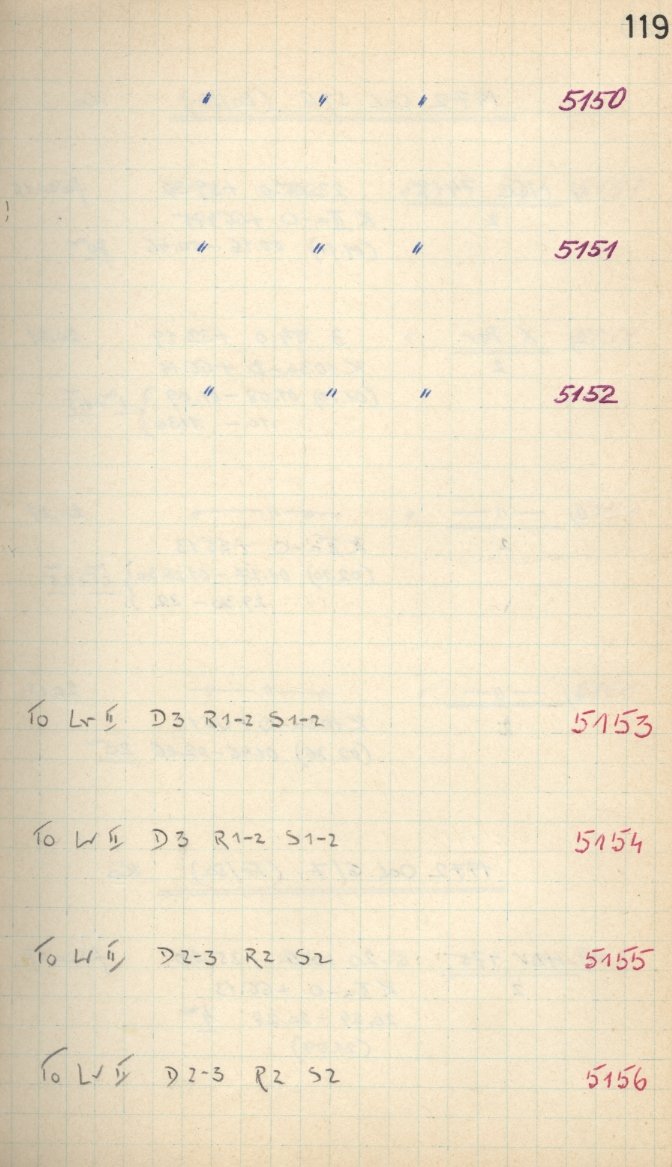 119
" " " 5150
" " " 5151
" " " 5152
To Lv II D3 R1-2 S1-2 5153
To Lv II D3 R1-2 S1-2 5154
To Lv II D2-3 R2 S2 5155
To Lv II D2-3 R2 S2 5156